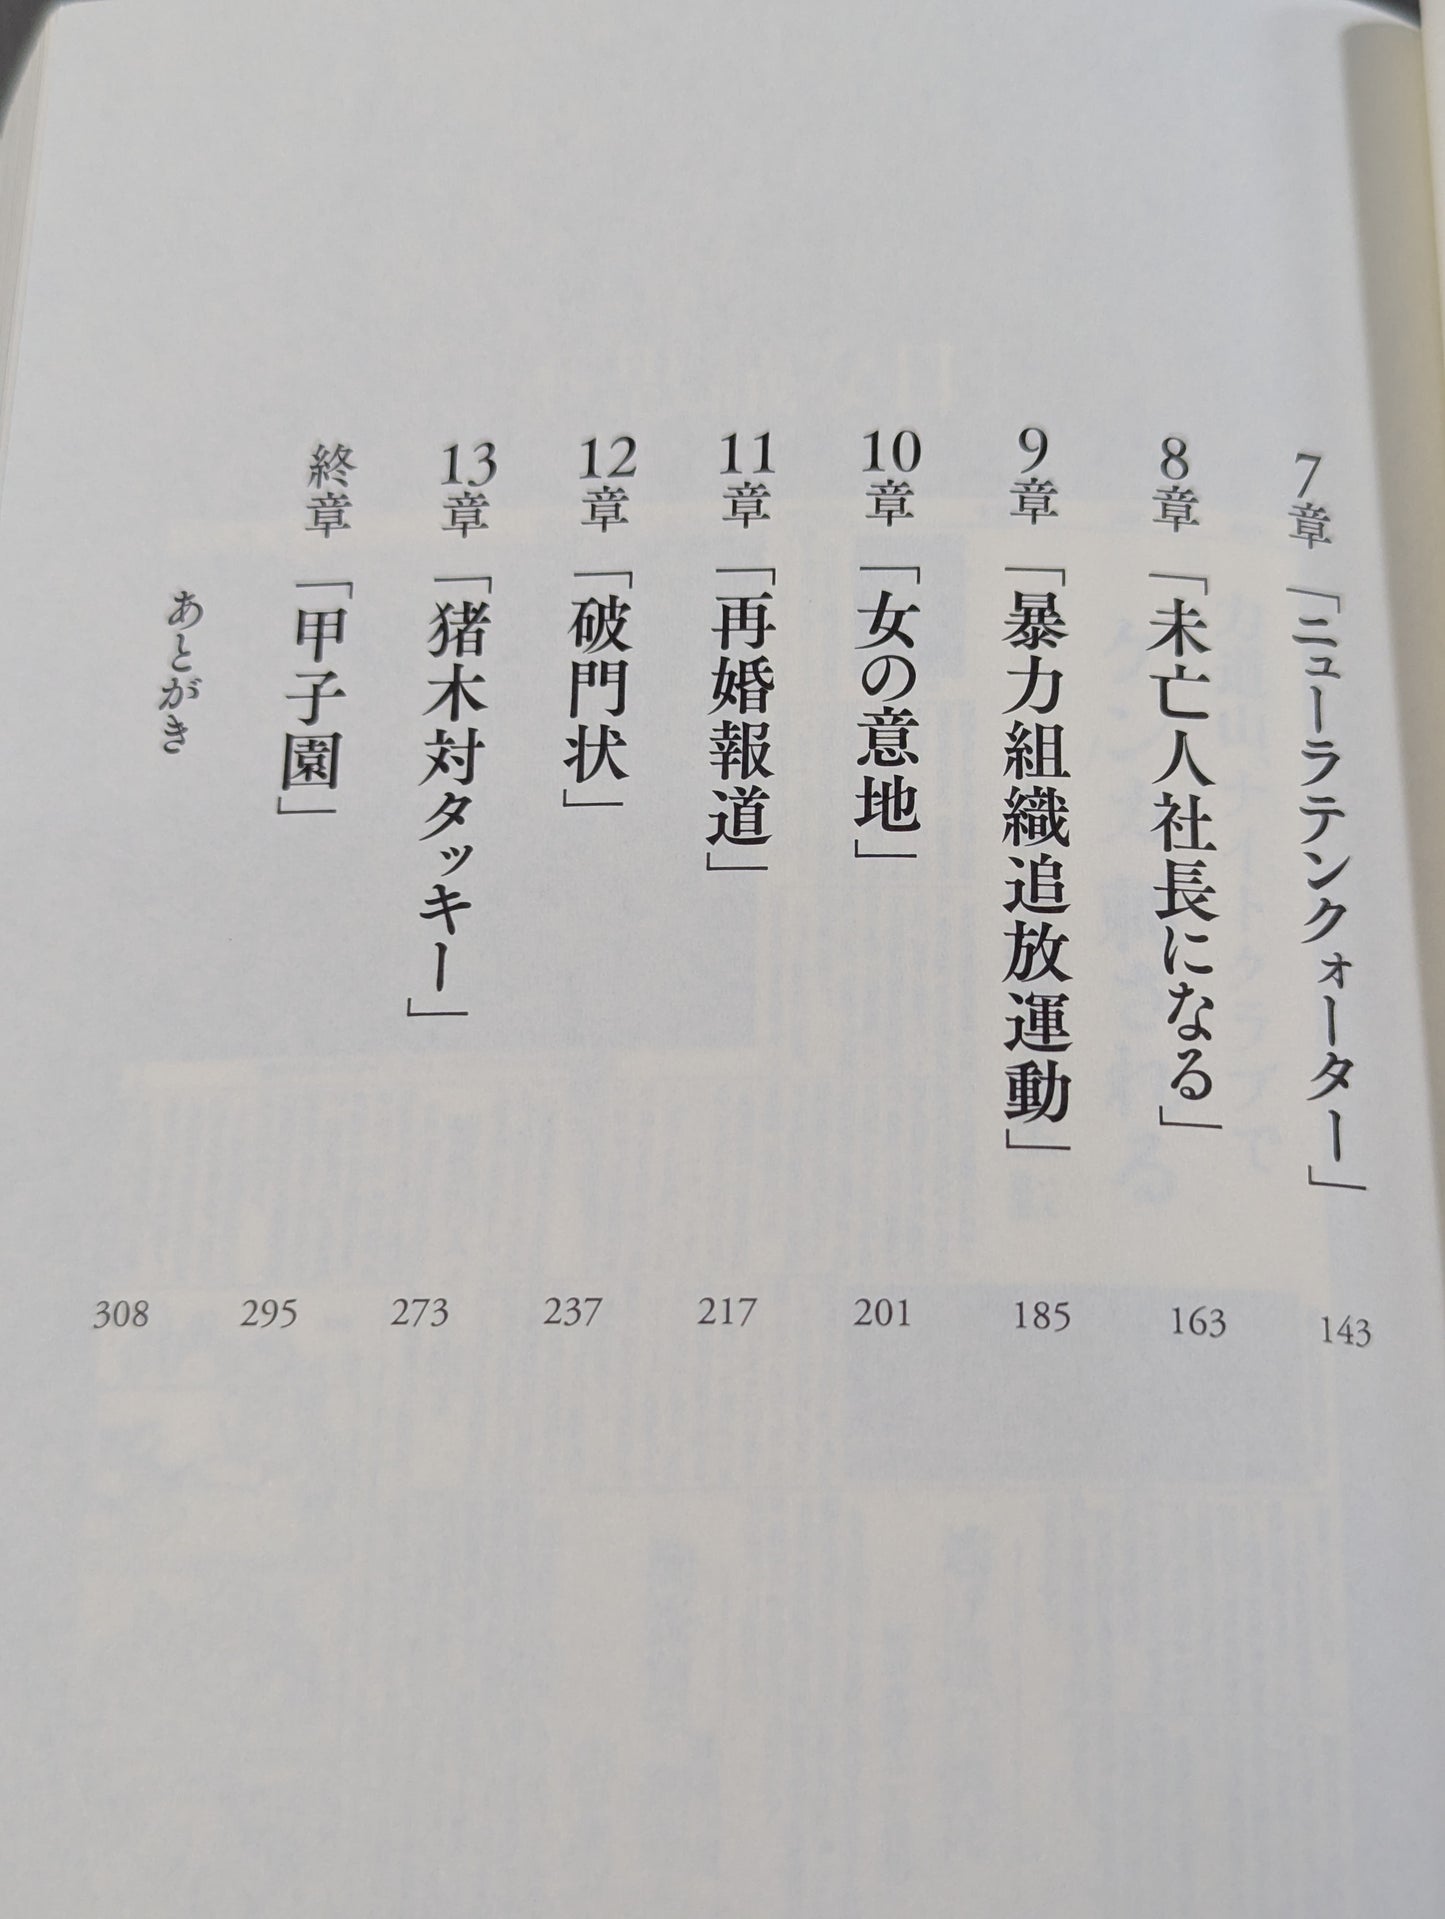 7章「ニューラテンクォーター」 143
8章「未亡人社長になる」 163
9章「暴力組織追放運動」 185
10章「女の意地」 201
11章「再婚報道」 217
12章「破門状」 237
13章「猪木対タッキー」 273
終章「甲子園」 295
あとがき 308